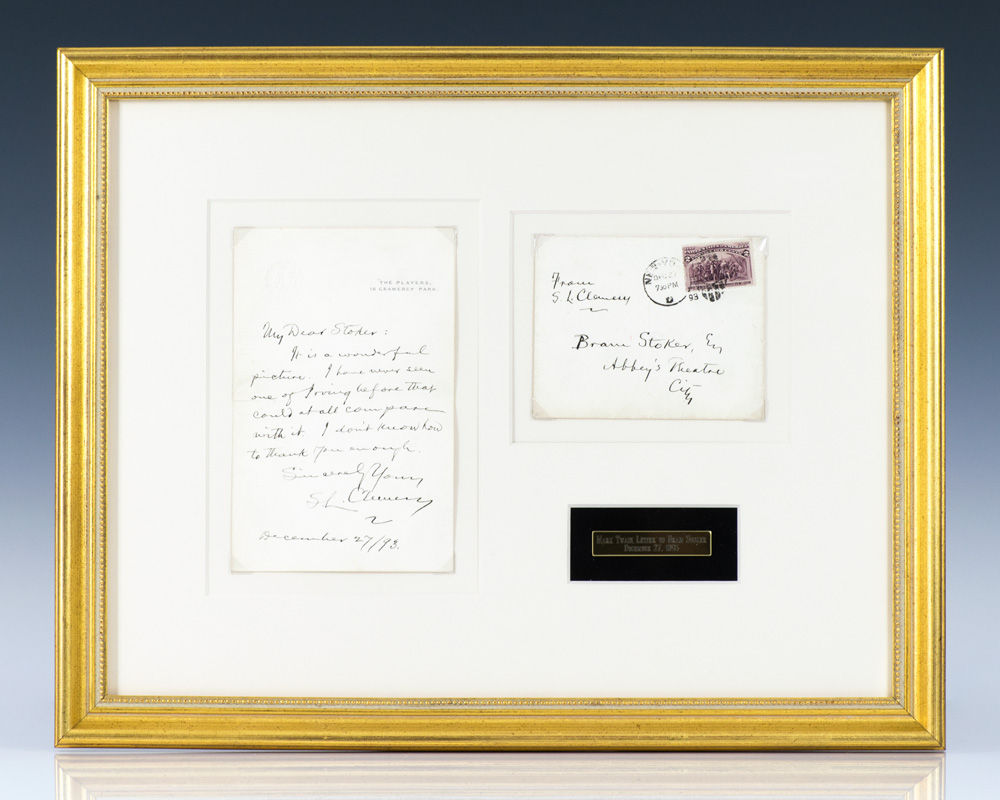 THE PLAYERS,
16 GRAMERCY PARK.
My Dear Stoker:
It is a wonderful
picture. I have never seen
one of Irving before that
could at all compare
with it. I don't know how
to thank you enough.
Sincerely Yours
S L Clemens
December 27/93.
From
S. L. Clemens
NEW YORK
DEC 27
730 PM
93
Bram Stoker, Esq
Abbey's Theatre
City
Mark Twain Letter to Bram Stoker
December 27, 1893